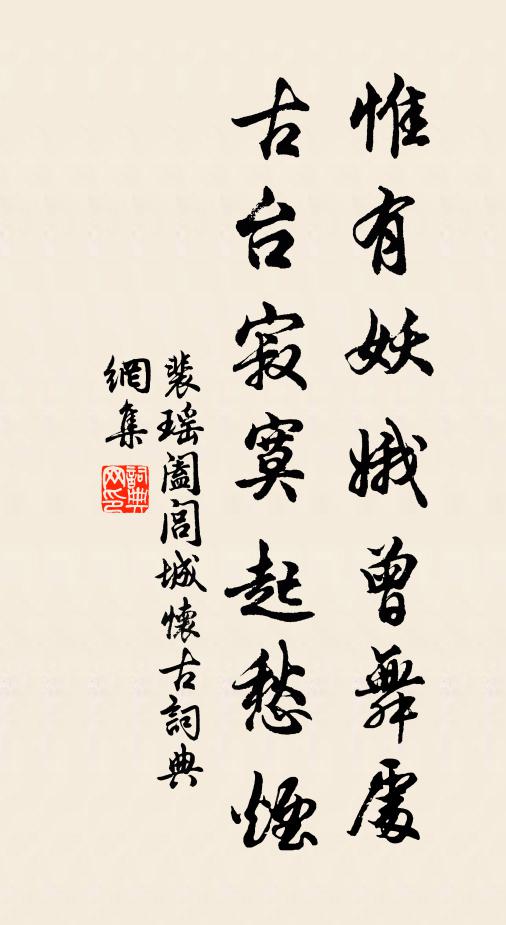 惟有妖娥曾舞處
古台寂寞起愁煙
裴瑶阖闾城懷古詞典
網集
詞典
网印